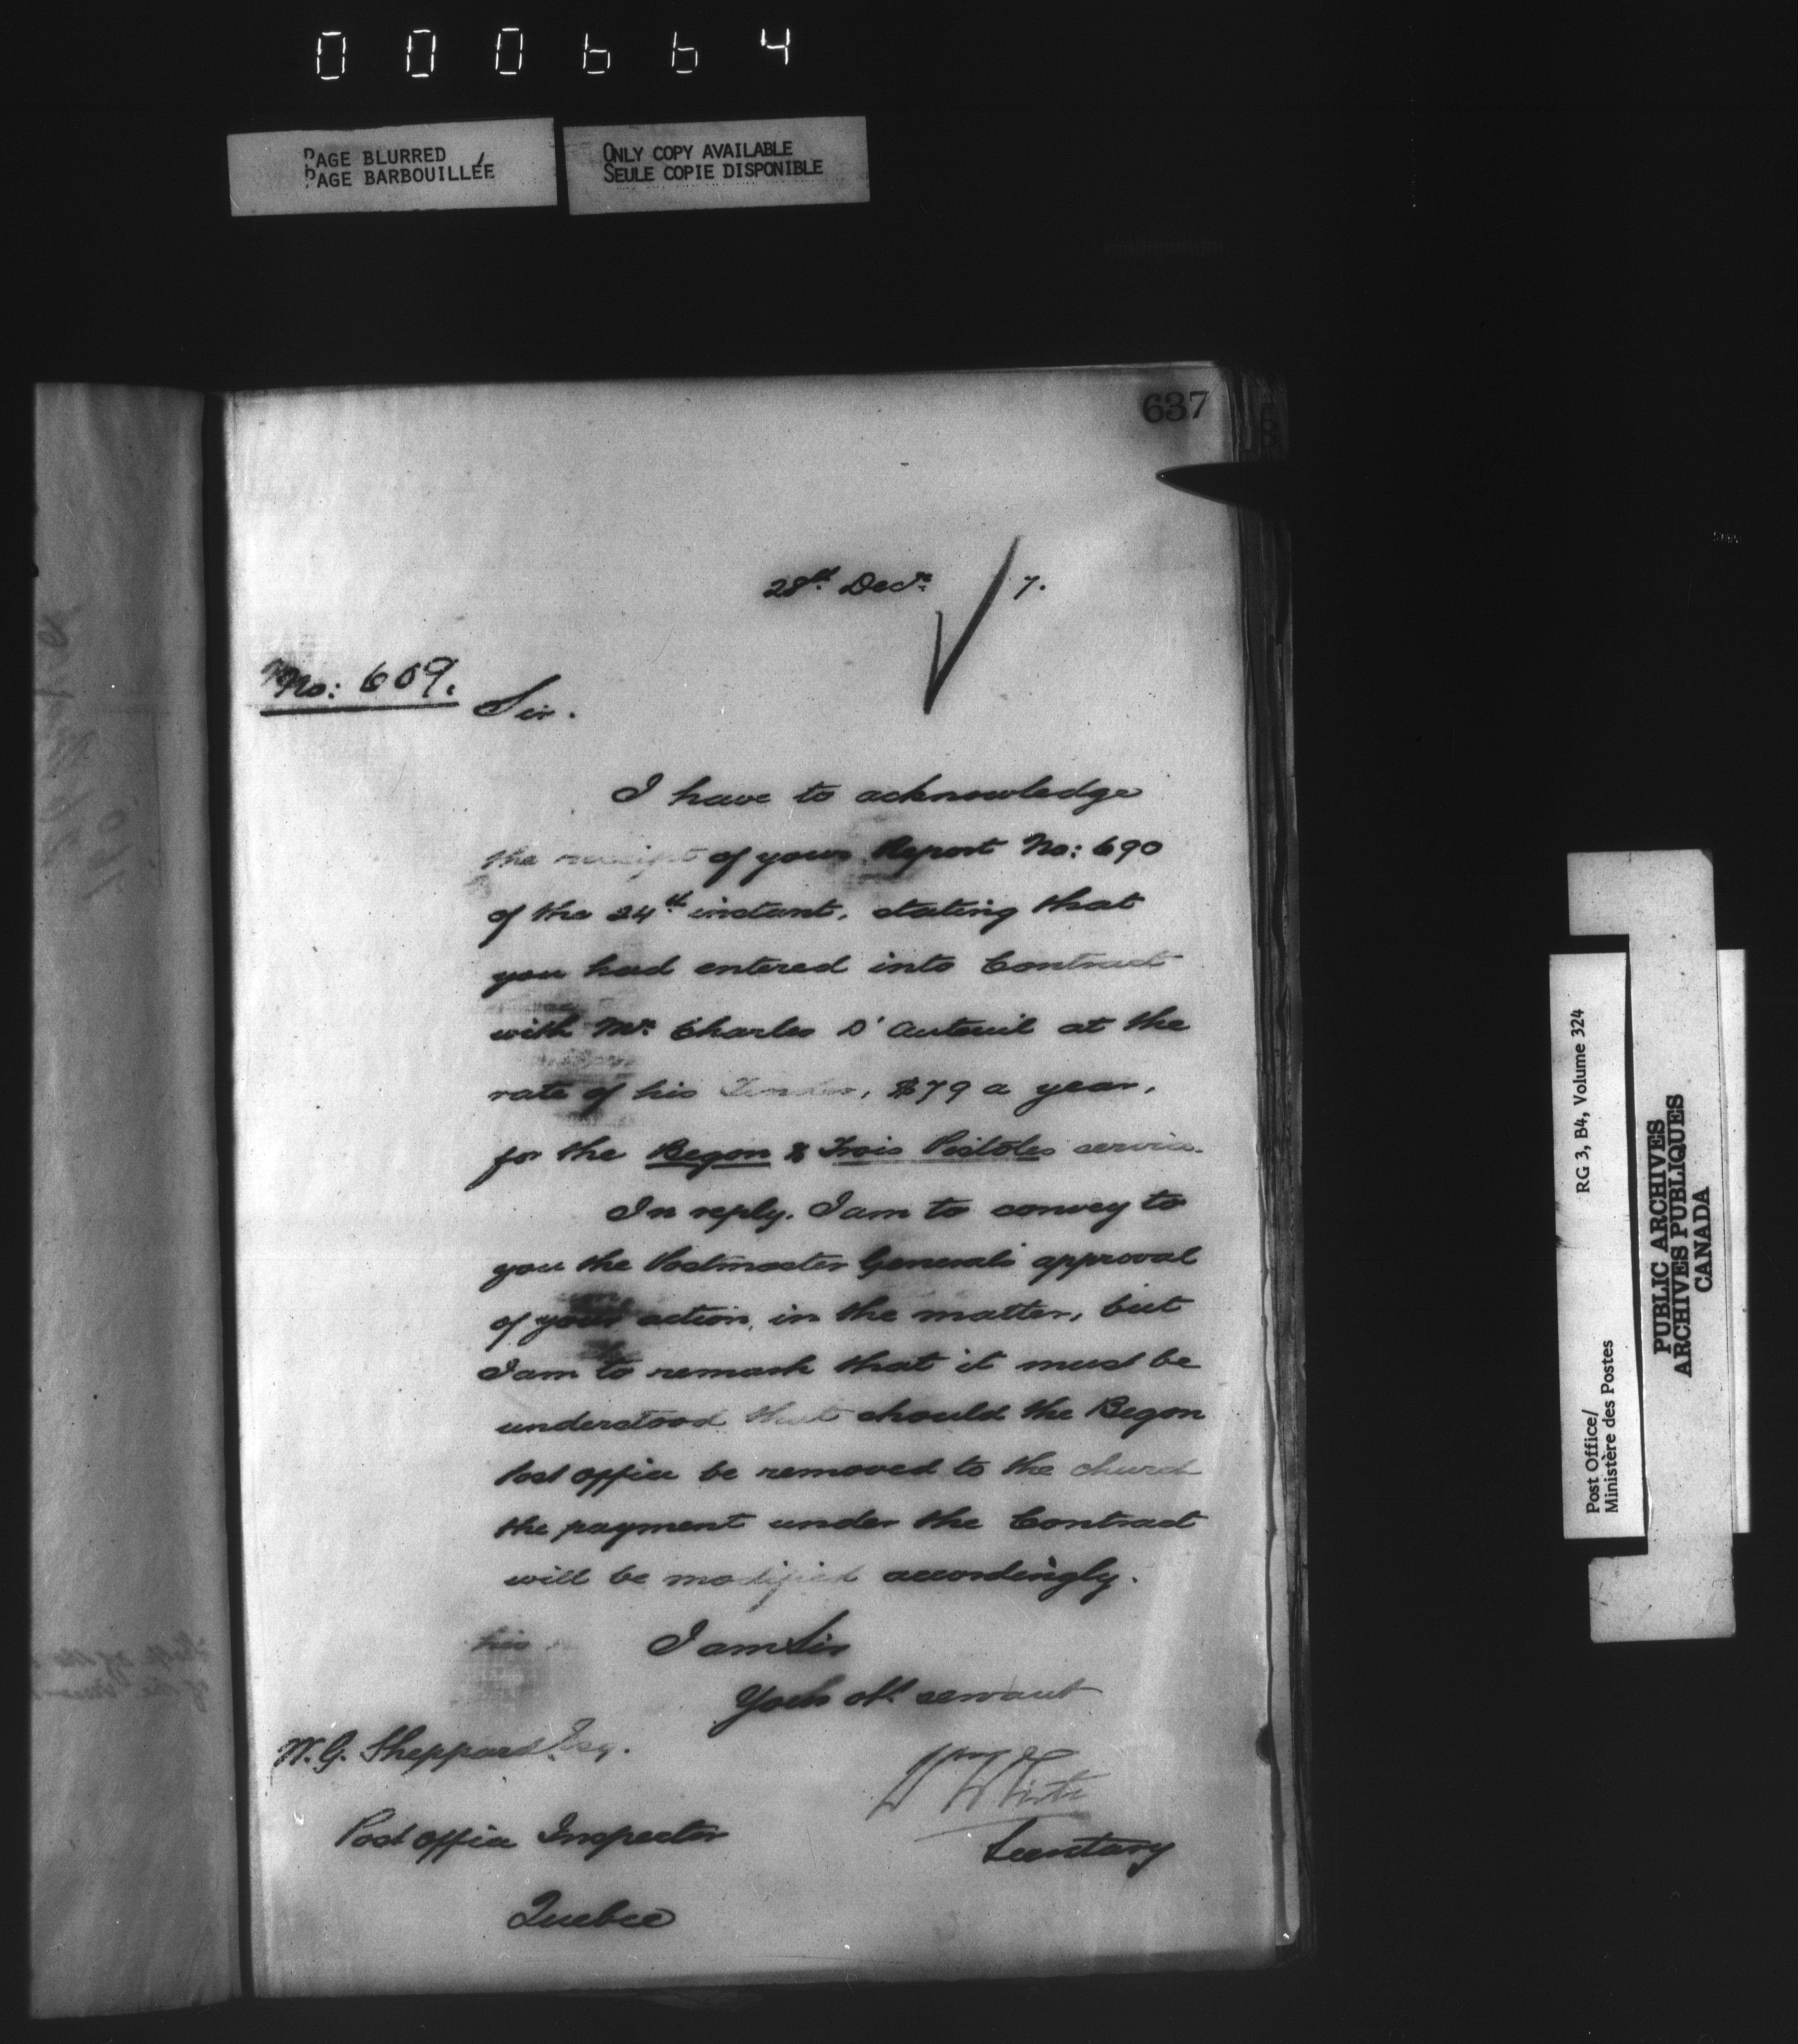 000664
PAGE BLURRED
PAGE BARBOUILLÉE
ONLY COPY AVAILABLE
SEULE COPIE DISPONIBLE
637
28th Decr. 7.
No: 609.
Sir.
I have to acknowledge
the receipt of your Report No: 690
of the 24th instant, stating that
you had entered into Contract
with Mr. Charles D'Auteuil at the
rate of his Tender, $79 a year,
for the Begon & Trois Pistoles service.
In reply. I am to convey to
you the Postmaster Generals approval
of your action, in the matter, but
I am to remark that it must be
understood that should the Begon
Post Office be removed to the church
the payment under the Contract
will be modified accordingly.
I am Sir
Your obt servant
W. G. Sheppard Esq.
Wm White
Post Office Inspector
Secretary
Quebec
RG 3, B4, Volume 324
Post Office/
Ministère des Postes
PUBLIC ARCHIVES
ARCHIVES PUBLIQUES
CANADA